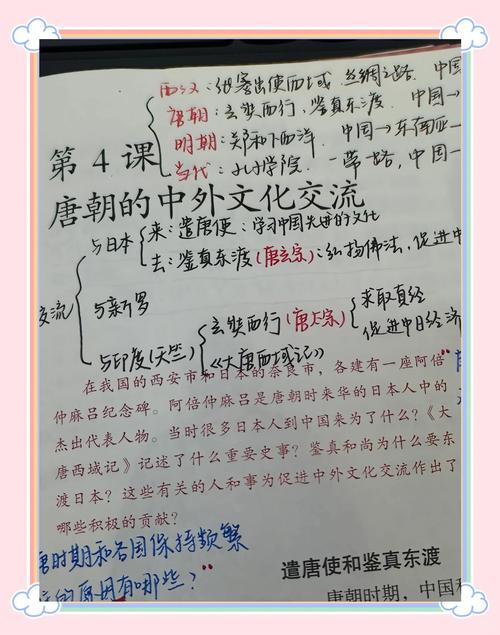 西汉：张骞出使西域 丝绸之路. 中国
唐朝：玄奘西行，鉴真东渡. 中国→
明朝：郑和下西洋. 中国→东南亚—
当代：孔子学院. 一带一路，中国一
第4课
唐朝的中外文化交流
与日本 来：遣唐使：学习中国先进的文化
去：鉴真东渡(唐玄宗)：弘扬佛法，促进中
交流
与新罗
与印度(天竺) 玄奘西行(唐太宗) 求取真经
促进中日经济
《大唐西域记》
在我国的西安市和日本的奈良市，各建有一座阿倍
仲麻吕纪念碑。阿倍仲麻吕是唐朝时来华的日本人中的
杰出代表人物。当时很多日本人到中国来为了什么？《大
唐西域记》记述了什么重要史事？鉴真和尚为什么要东
渡日本？这些有关的人和事为促进中外文化交流作出了
哪些积极的贡献？
唐时期和各国保持频繁
的原因有哪些？"
遣唐使和鉴真东渡
唐朝时期，中国和